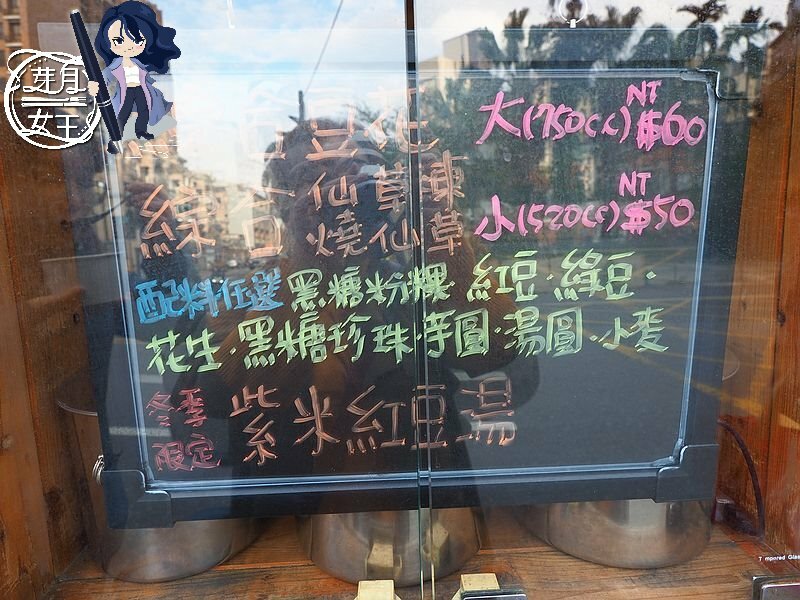 芽月
女王
豆花
綜合
仙草凍
燒仙草
大(750c.c.)NT$60
小(520cc)NT$50
配料任選 黑糖粉粿・紅豆・綠豆・
花生・黑糖珍珠・芋圓・湯圓・小麥
冬季
限定
紫米紅豆湯
Tempered Glass